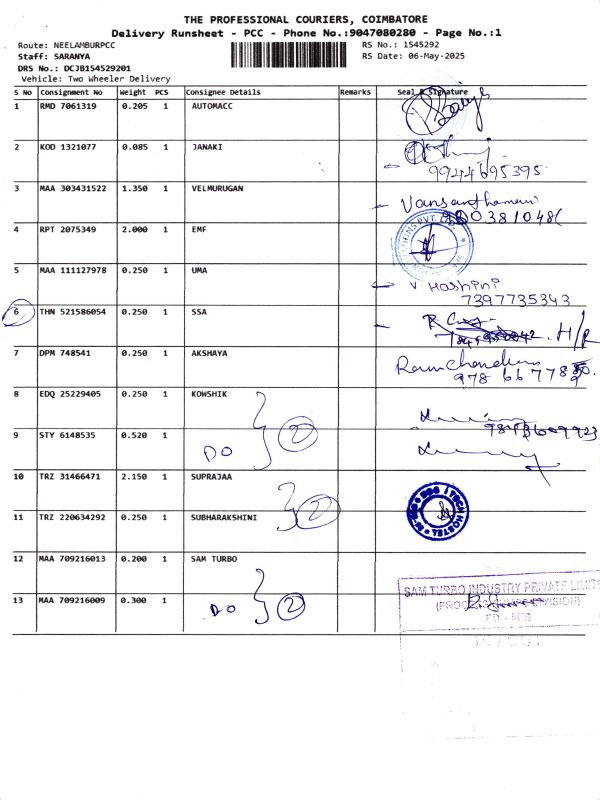 THE PROFESSIONAL COURIERS, COIMBATORE
Delivery Runsheet - PCC - Phone No.:9047080280 - Page No.:1
Route: NEELAMBURPCC RS No.: 1545292
Staff: SARANYA RS Date: 06-May-2025
DRS No.: DCJB154529201
Vehicle: Two Wheeler Delivery
S No Consignment No Weight PCS Consignee Details Remarks Seal & Signature
1 RMD 7061319 0.205 1 AUTOMACC
2 KOD 1321077 0.085 1 JANAKI
9944695395
3 MAA 303431522 1.350 1 VELMURUGAN
4 RPT 2075349 2.000 1 EMF
5 MAA 111127978 0.250 1 UMA
V Hashini
7397735343
6 THN 521586054 0.250 1 SSA
H/R
7 DPM 748541 0.250 1 AKSHAYA
8 EDQ 25229405 0.250 1 KOWSHIK
9 STY 6148535 0.520 1 DO 2
10 TRZ 31466471 2.150 1 SUPRAJAA
2
11 TRZ 220634292 0.250 1 SUBHARAKSHINI
12 MAA 709216013 0.200 1 SAM TURBO
SAM TURBO INDUSTRY PRIVATE
13 MAA 709216009 0.300 1 DO 2